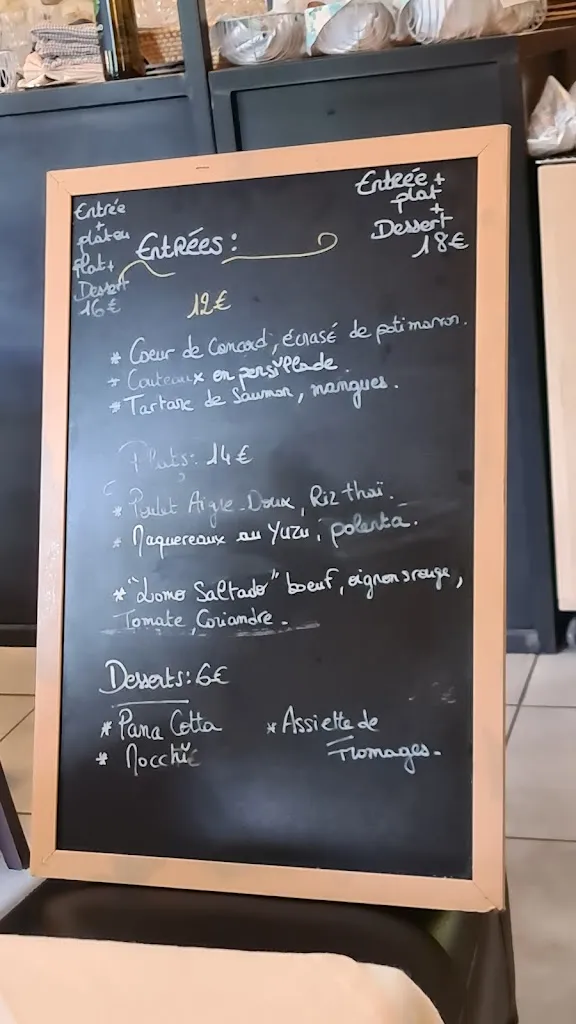 Entrée
+
plat ou
plat +
Dessert
16€
Entrée +
plat
+
Dessert
18€
Entrées :
12€
* Coeur de Canard, écrasé de potimarron.
* Couteaux en persillade.
* Tartare de Saumon, mangues.
Plats: 14€
* Poulet Aigre-Doux, Riz thaï.
* Maquereaux au Yuzu, polenta.
* "Lomo Saltado" boeuf, oignons rouge,
Tomate, Coriandre.
Desserts: 6€
* Pana Cotta
* Mocchi
* Assiette de
Fromages.